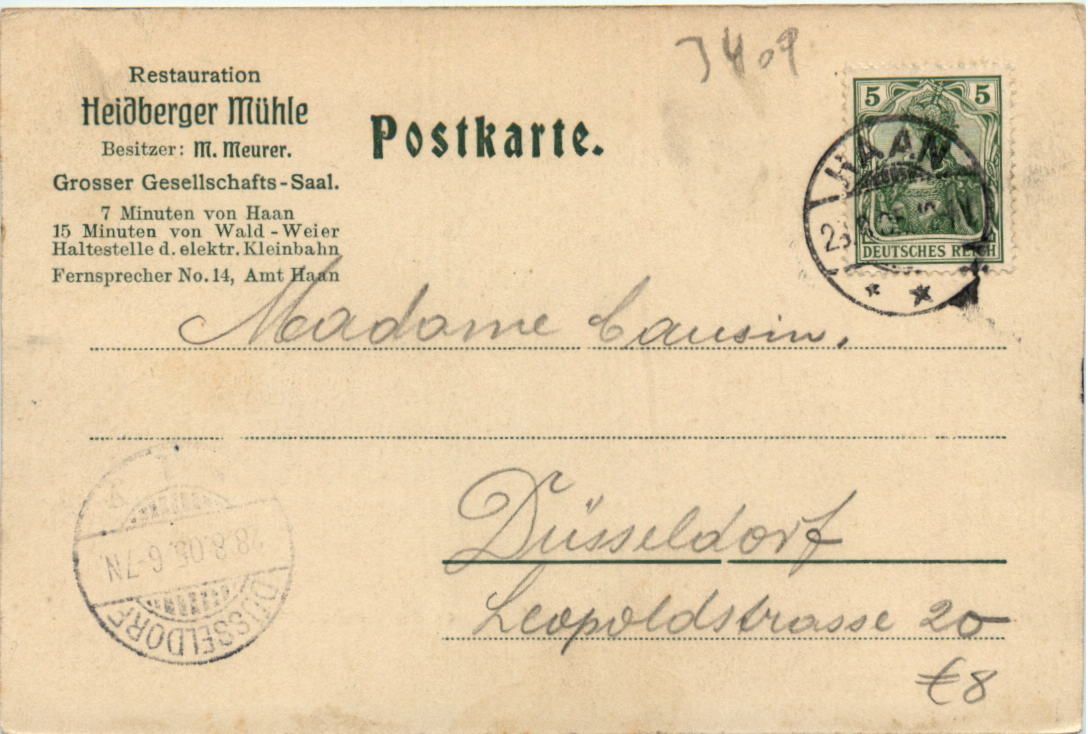 Restauration
Heidberger Mühle
Besitzer: M. Meurer.
Grosser Gesellschafts-Saal.
7 Minuten von Haan
15 Minuten von Wald-Weier
Haltestelle d. elektr. Kleinbahn
Fernsprecher No. 14, Amt Haan
Postkarte.
5 5
DEUTSCHES REICH
HAAN
Madame Causin.
Düsseldorf
Leopoldstrasse 20
€8
28.8.05. 6-7N.
DÜSSELDORF